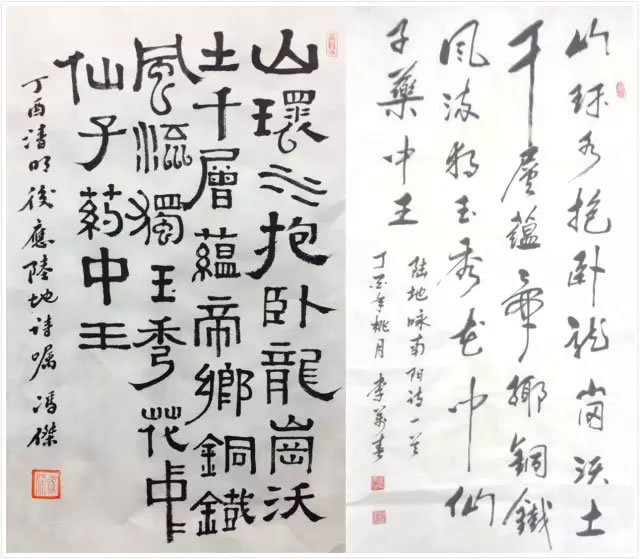 山環水抱卧龍崗沃
土千層蘊帝鄉銅鐵
風流獨玉秀花中
仙子葯中王
丁酉清明後應陸地詩囑 馮傑
山环水抱卧龙岗沃土
千層蘊帝鄉銅鐵
风流独玉秀花中仙
子藥中王
陆地咏南阳诗一首
丁酉年桃月 李